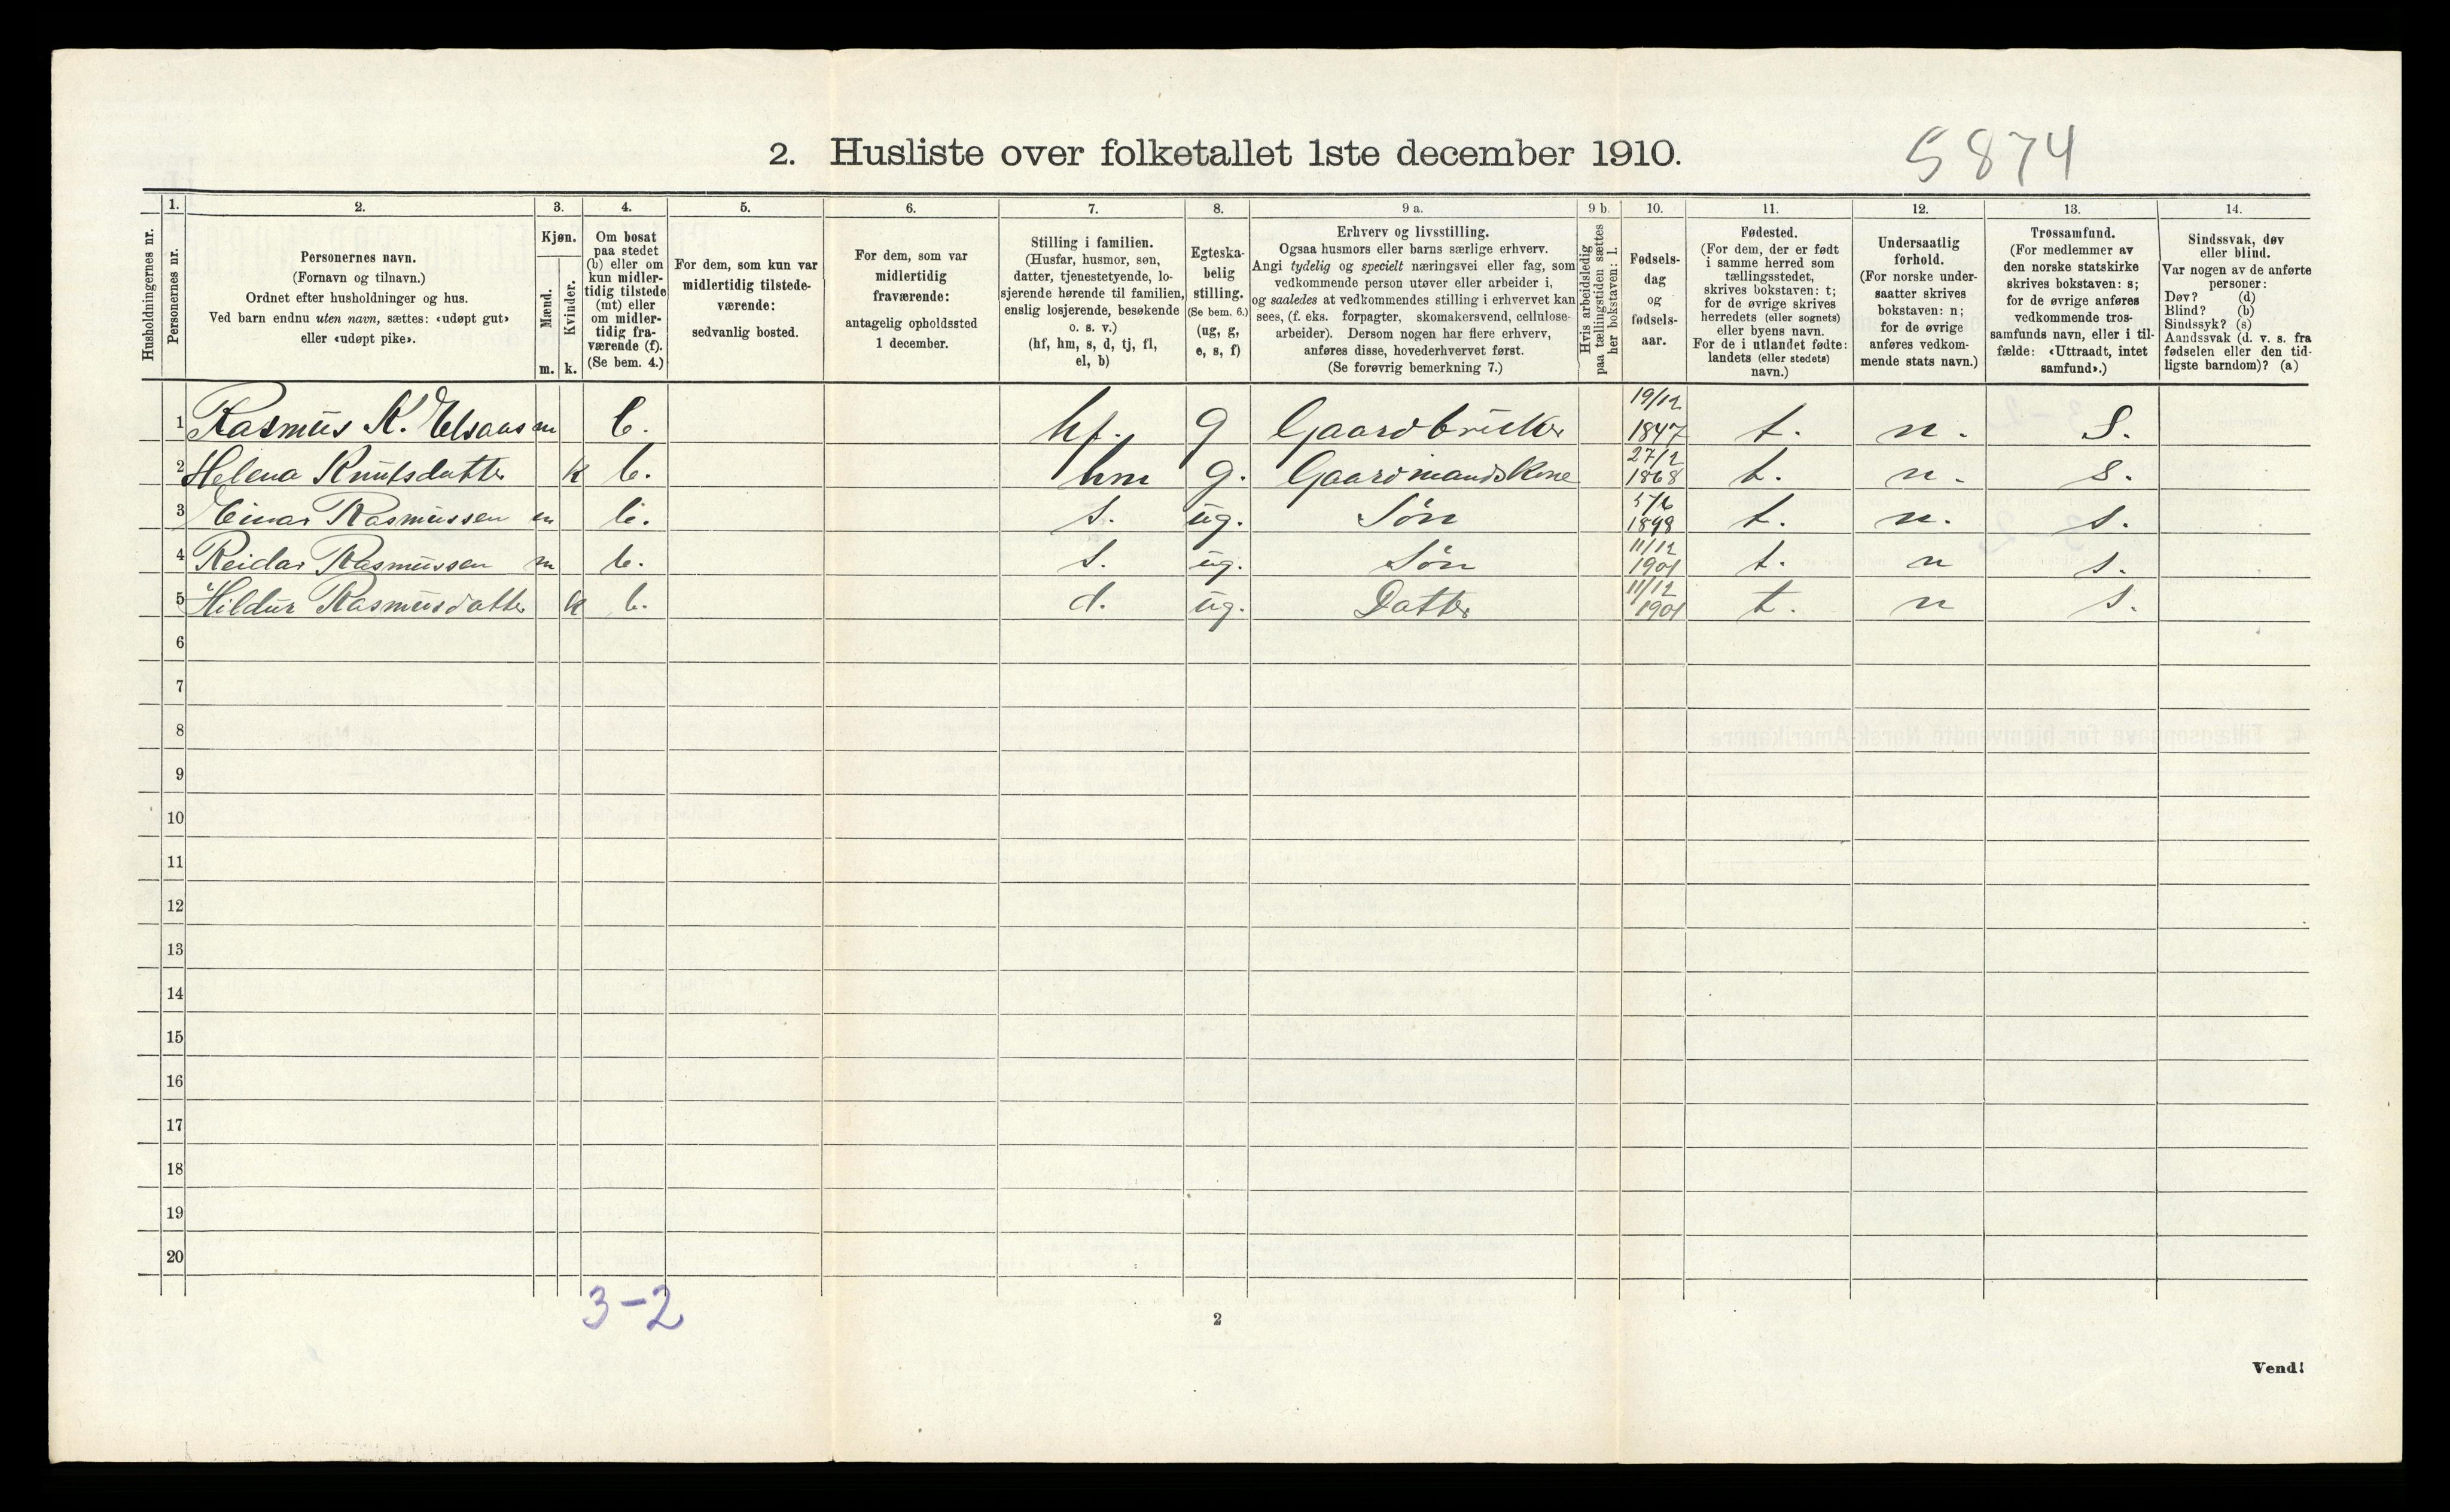 2. Husliste over folketallet 1ste december 1910.
5874
Husholdningernes nr.
1.
Personernes nr.
2.
Personernes navn.
(Fornavn og tilnavn.)
Ordnet efter husholdninger og hus.
Ved barn endnu uten navn, sættes: «udøpt gut»
eller «udøpt pike».
3.
Kjøn.
Mænd.
Kvinder.
m. k.
4.
Om bosat
paa stedet
(b) eller om
kun midler-
tidig tilstede
(mt) eller
om midler-
tidig fra-
værende (f).
(Se bem. 4.)
5.
For dem, som kun var
midlertidig tilstede-
værende:
sedvanlig bosted.
6.
For dem, som var
midlertidig
fraværende:
antagelig opholdssted
1 december.
7.
Stilling i familien.
(Husfar, husmor, søn,
datter, tjenestetyende, lo-
sjerende hørende til familien,
enslig losjerende, besøkende
o. s. v.)
(hf, hm, s, d, tj, fl,
el, b)
8.
Egteska-
belig
stilling.
(Se bem. 6.)
(ug, g,
e, s, f)
9 a.
Erhverv og livsstilling.
Ogsaa husmors eller barns særlige erhverv.
Angi tydelig og specielt næringsvei eller fag, som
vedkommende person utøver eller arbeider i,
og saaledes at vedkommendes stilling i erhvervet kan
sees, (f. eks. forpagter, skomakersvend, cellulose-
arbeider). Dersom nogen har flere erhverv,
anføres disse, hovederhvervet først.
(Se forøvrig bemerkning 7.)
9 b.
Hvis arbeidsledig
paa tællingstiden sættes
her bokstaven: l.
10.
Fødsels-
dag
og
fødsels-
aar.
11.
Fødested.
(For dem, der er født
i samme herred som
tællingsstedet,
skrives bokstaven: t;
for de øvrige skrives
herredets (eller sognets)
eller byens navn.
For de i utlandet fødte:
landets (eller stedets)
navn.)
12.
Undersaatlig
forhold.
(For norske under-
saatter skrives
bokstaven: n;
for de øvrige
anføres vedkom-
mende stats navn.)
13.
Trossamfund.
(For medlemmer av
den norske statskirke
skrives bokstaven: s;
for de øvrige anføres
vedkommende tros-
samfunds navn, eller i til-
fælde: «Uttraadt, intet
samfund».)
14.
Sindssvak, døv
eller blind.
Var nogen av de anførte
personer:
Døv? (d)
Blind? (b)
Sindssyk? (s)
Aandssvak (d. v. s. fra
fødselen eller den tid-
ligste barndom)? (a)
1 Rasmus K. Elsaas m b. hf. g Gaardbruker 19/12 1847 t. n. s.
2 Helena Knutsdatter k b. hm g. Gaardmandskone 27/2 1868 t. n. s.
3 Einar Rasmussen m b. s. ug. Søn 5/6 1898 t. n. s.
4 Reidar Rasmussen m b. s. ug. Søn 11/12 1901 t. n s.
5 Hildur Rasmusdatter k b. d. ug. Datter 11/12 1901 t. n s.
6
7
8
9
10
11
12
13
14
15
16
17
18
19
20
3-2
2
Vend!